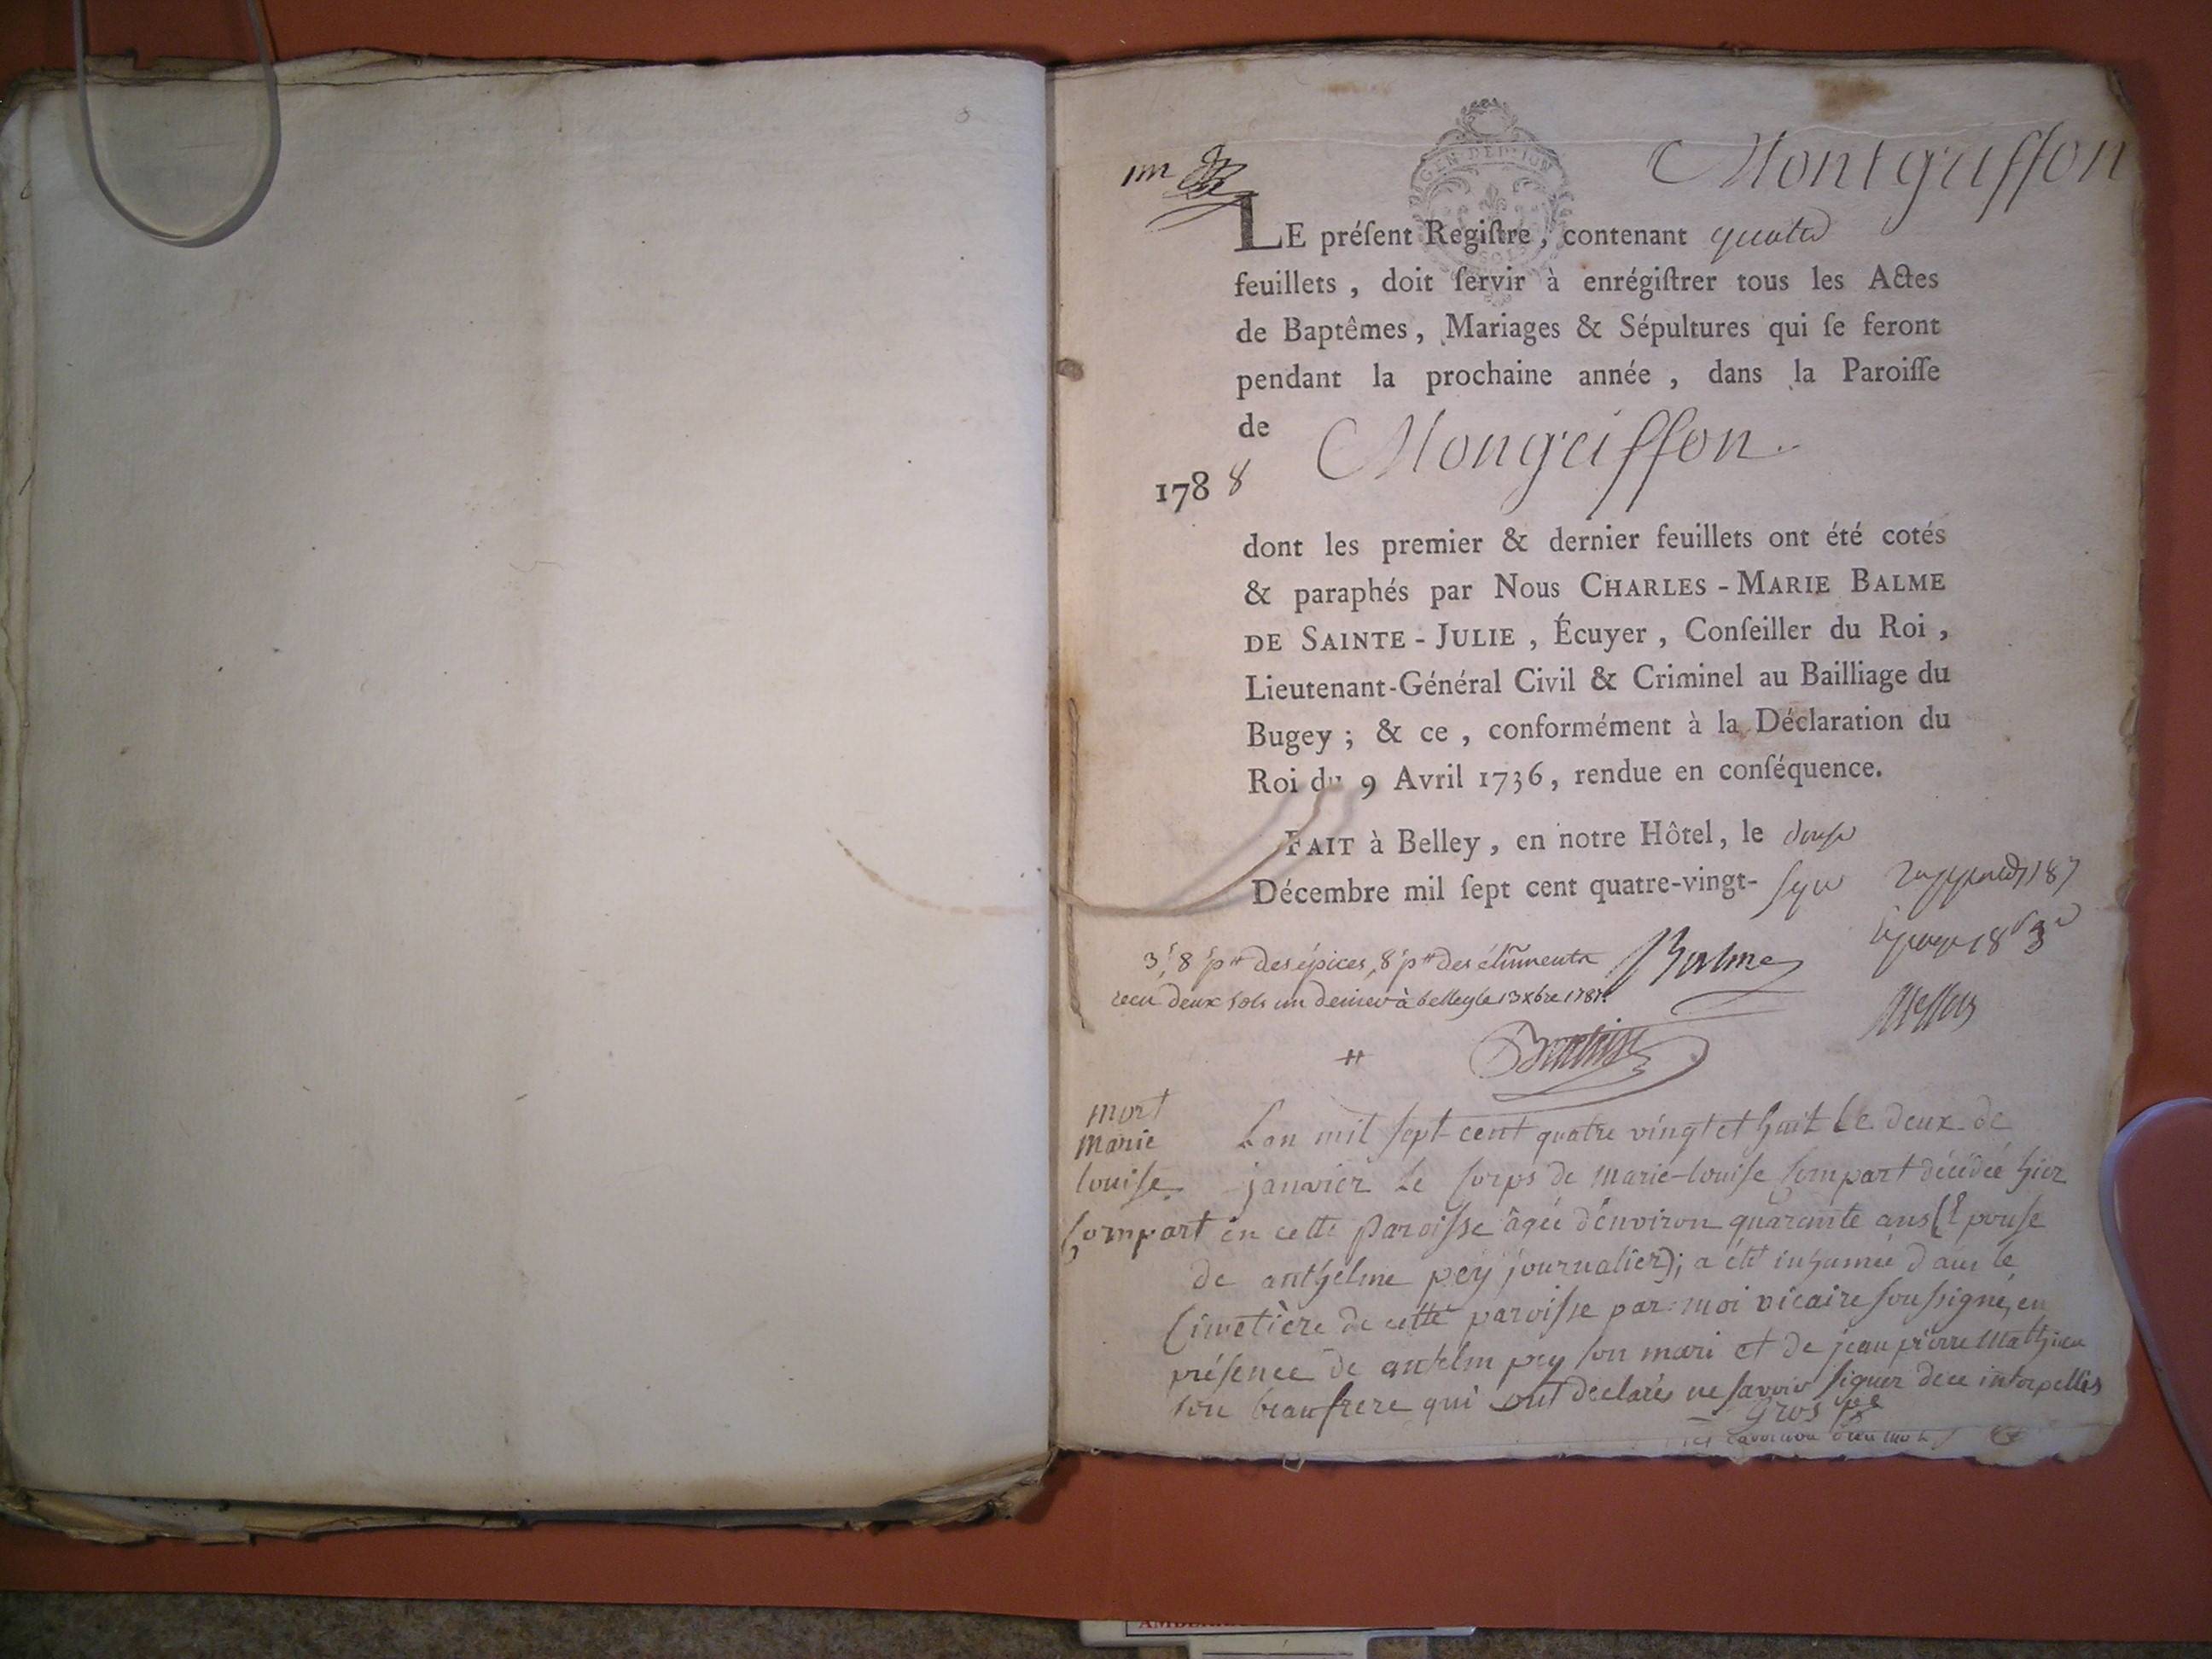 Montgriffon
GEN. DE DIJON
LE préſent Regiſtre, contenant quatre
feuillets, doit ſervir à enrégiſtrer tous les Actes
de Baptêmes, Mariages & Sépultures qui ſe feront
pendant la prochaine année, dans la Paroiſſe
de Mongriffon.
1788
dont les premier & dernier feuillets ont été cotés
& paraphés par Nous CHARLES-MARIE BALME
DE SAINTE-JULIE, Écuyer, Conſeiller du Roi,
Lieutenant-Général Civil & Criminel au Bailliage du
Bugey; & ce, conformément à la Déclaration du
Roi du 9 Avril 1736, rendue en conſéquence.
FAIT à Belley, en notre Hôtel, le douze
Décembre mil ſept cent quatre-vingt-ſept
3ˢ, 8ˢ pʳ des épices, 8ˢ pʳ des émuments Balme
recu deux sols un denier à belley le 13 xbre 1787.
mort
marie
louise
Compart
Lan mil sept cent quatre vingt et huit le deux de
janvier le corps de marie-louise Compart décédée hier
en cette paroisse âgée d'environ quarante ans (Epouse
de anthelme pey journalier); a été inhumée dans le
Cimetière de cette paroisse par moi vicaire soussigné, en
présence de anthelm pey son mari et de jean pierre Mathieu
son beaufrere qui ont declarés ne savoir signer de ce interpellés
Gros